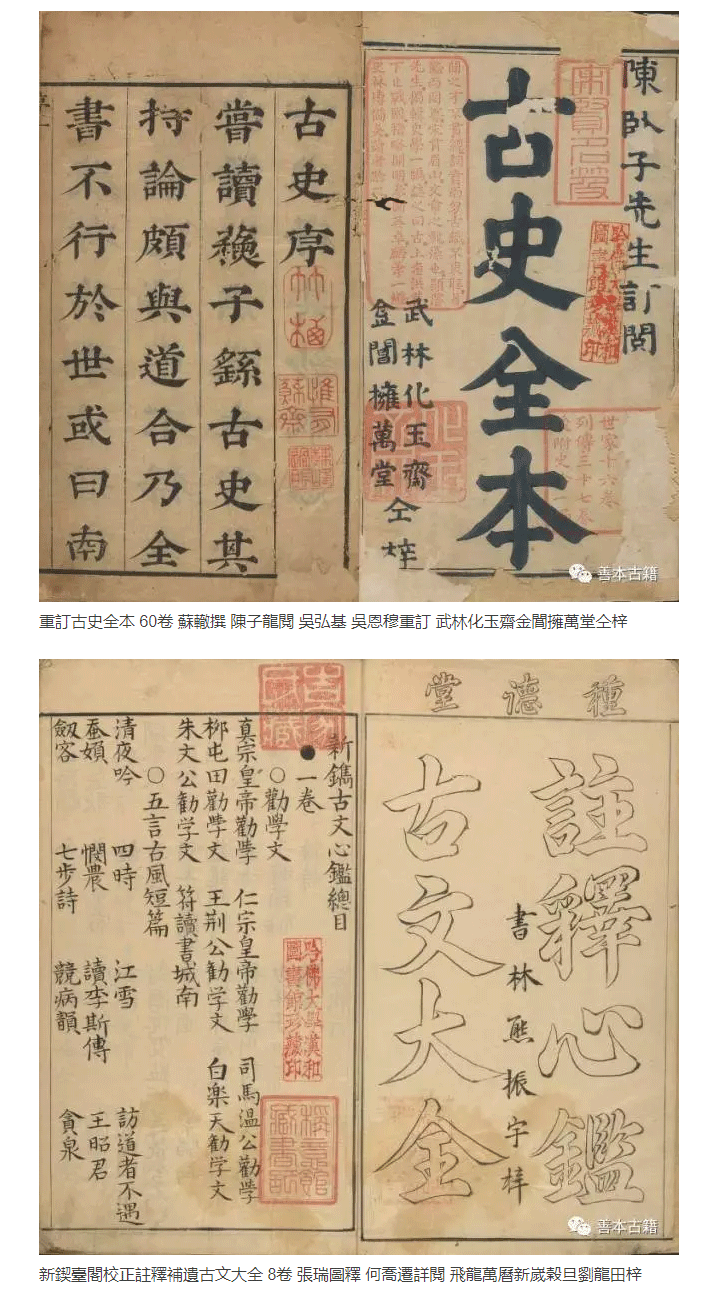 陳臥子先生訂閱
古史全本
武林化玉齋
金閶擁萬堂 仝梓
世家十六卷
列傳三十七卷
哈佛大學漢和圖書館珍藏印
古史序
嘗讀蘇子繇古史其
持論頗與道合乃全
書不行於世或曰南
善本古籍
重訂古史全本 60卷 蘇轍撰 陳子龍閱 吳弘基 吳恩穆重訂 武林化玉齋金閶擁萬堂仝梓
種德堂
註釋心鑑
古文大全
書林熊振宇梓
新鐫古文心鑑總目
●一卷
○勸學文
真宗皇帝勸學 仁宗皇帝勸學 司馬温公勸學
柳屯田勸學文 王荆公勸学文 白楽天勸学文
朱文公勸学文 符讀書城南
○五言古風短篇
清夜吟 四時 江雪 訪道者不遇
蚕婦 憫農 讀李斯傳 王昭君
劔客 七步詩 競病韻 貪泉
哈佛大學漢和圖書館珍藏印
善本古籍
新鍥臺閣校正註釋補遺古文大全 8卷 張瑞圖釋 何喬遷詳閱 飛龍萬曆新嵗穀旦劉龍田梓